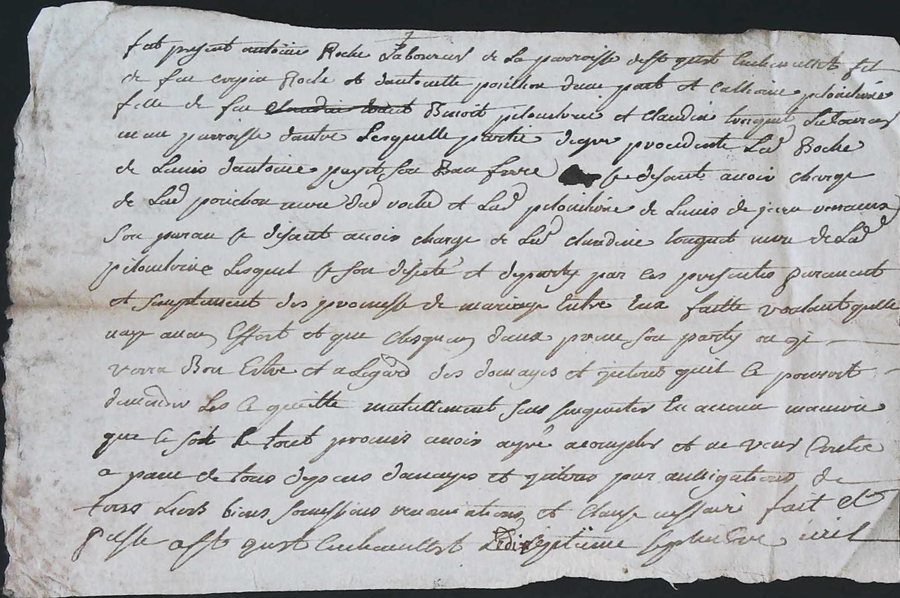 fut present antoine Roche Laboureur de la parroisse de St just Enchevallet fil
de feu crepin Roche et dantoinette poichon dune part et Catherine piloudrine
fille de feu Benoit piloudrine et claudine longuet
parroisse dautre Lesquelle partie degre procedante Led Roche
de Lavis dantoine son Beau frere se disant avoir charge
de Lad poichon mere dud roche et Lad piloudrine de Lavis de
son paran se disant avoir charge de Lad claudine longuet mere de Lad
piloudrine Lesquel se son et departy par ces presentes purement
et simplement des promesse de mariage Entre Eux faitte voulant quelle
naye aucun Effort et que chasquun deux prene son party ou
verra Bon Estre et a Legard des domages et quil ce pouroit
demander Les ce quitte mutuellement sans En aucune maniere
que ce soit le tout promis avoir agre acomplir et ne venir Contre
a peine de tous depens damages et par aubligations de
tous Leurs biens soumissions renonciations et clause fait et
passe a St just Enchevallet Le dix septieme septembre